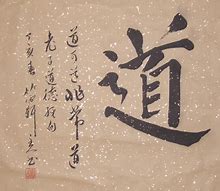 道
道可道非常道
老子道德经句
丁亥春